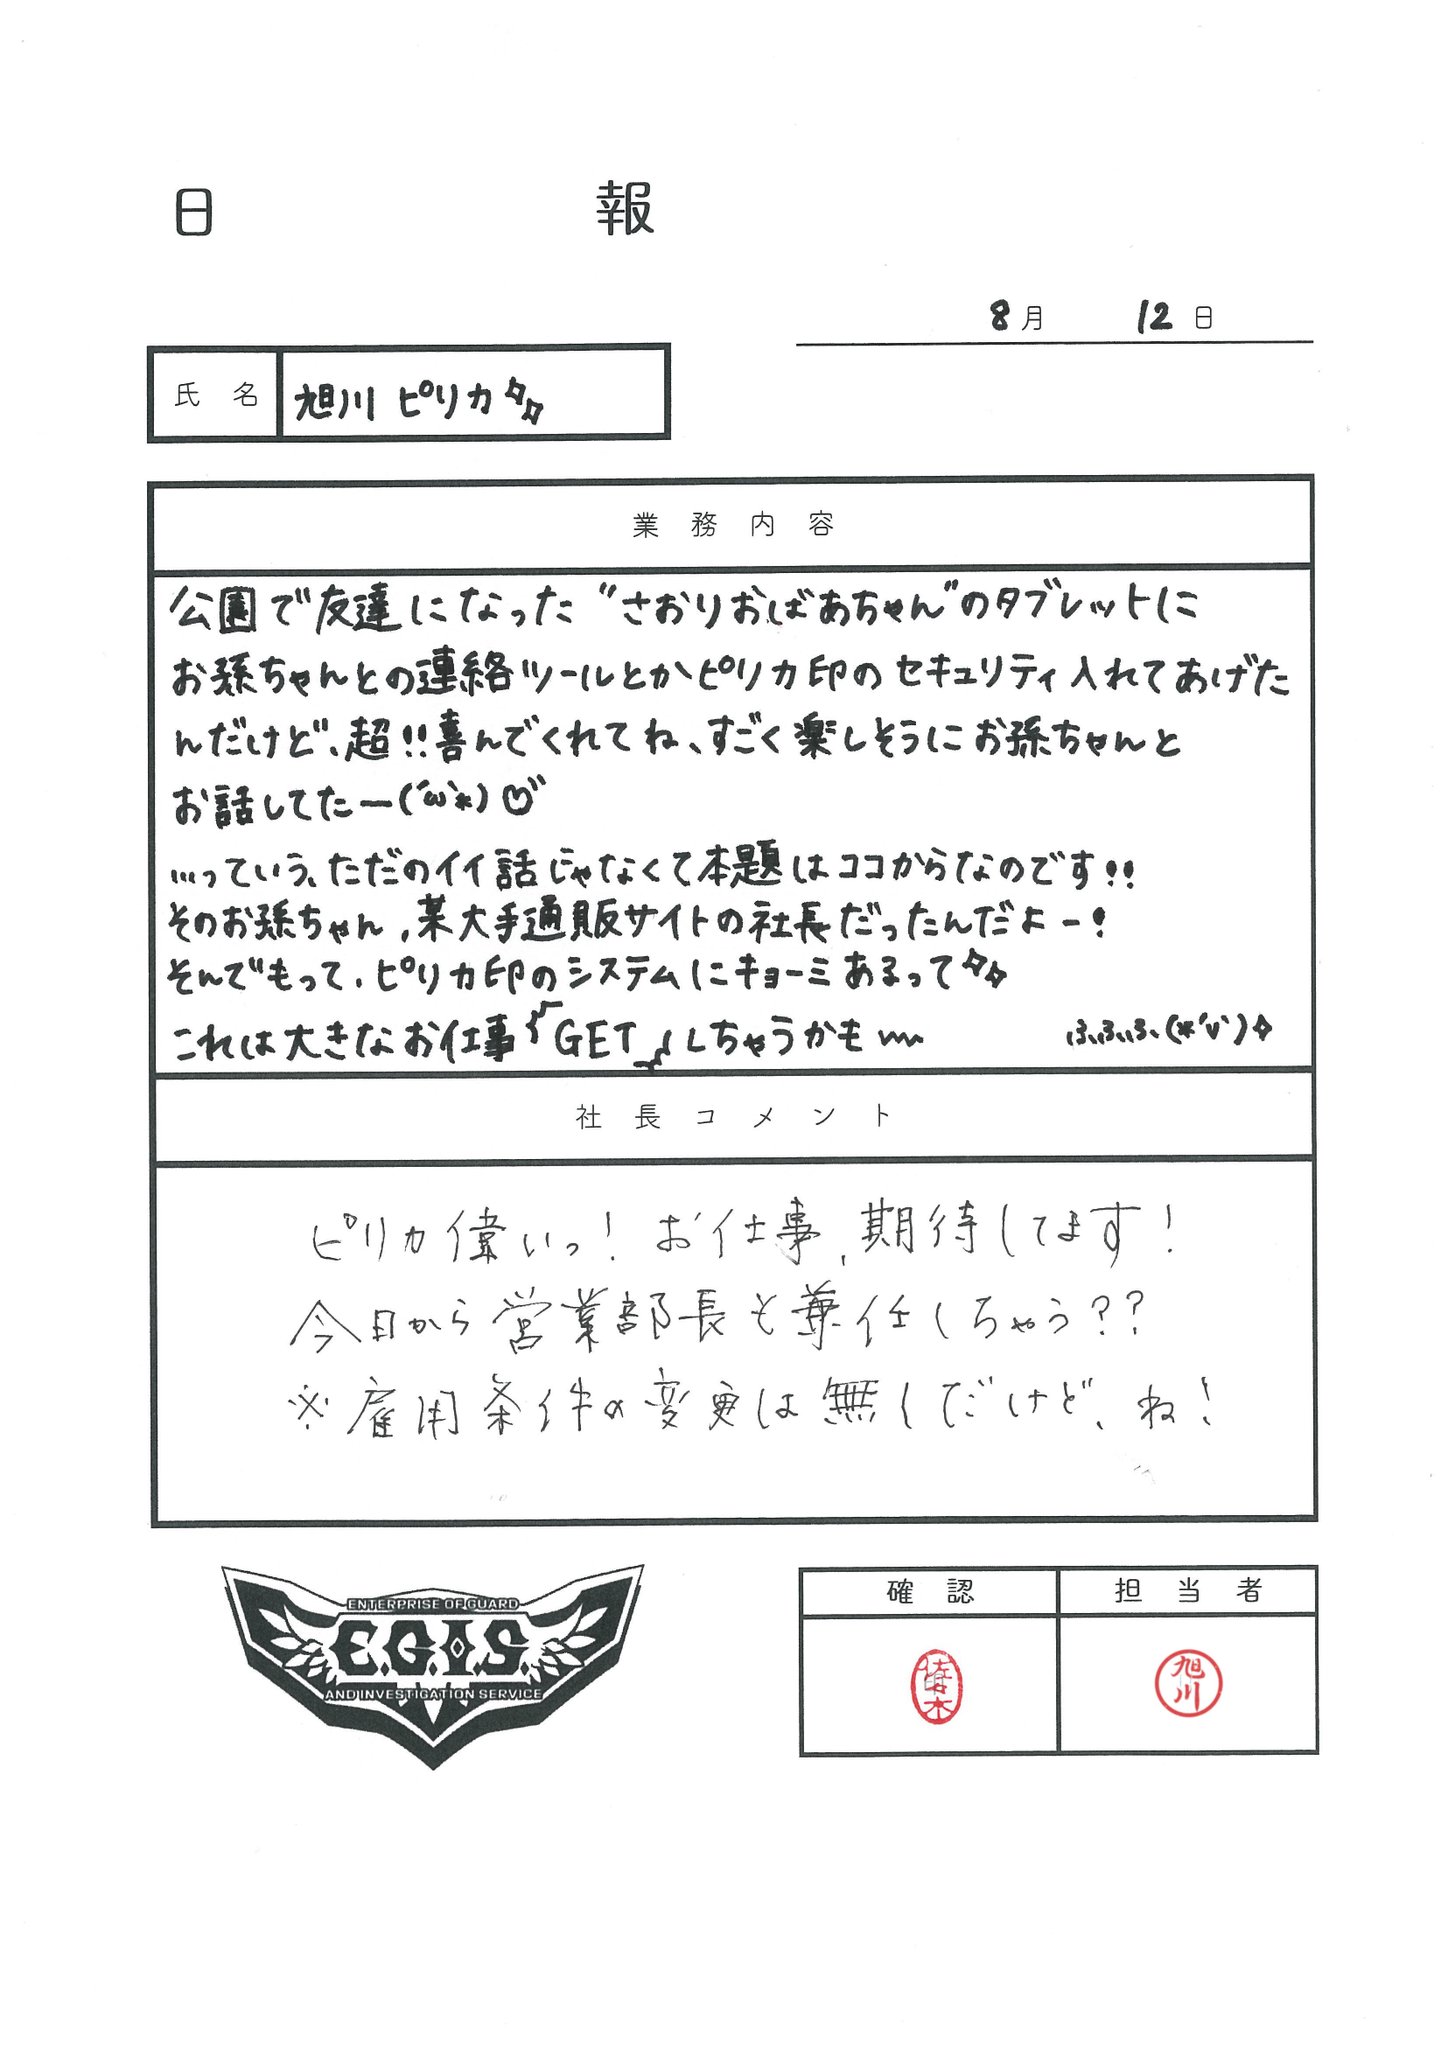 日報
8月 12日
氏名 旭川 ピリカ
業務内容
公園で友達になった"さおりおばあちゃん"のタブレットに
お孫ちゃんとの連絡ツールとかピリカ印のセキュリティ入れてあげた
んだけど、超!!喜んでくれてね、すごく楽しそうにお孫ちゃんと
お話してたー(´ω`*)♡
…っていう、ただのイイ話じゃなくて本題はココからなのです!!
そのお孫ちゃん、某大手通販サイトの社長だったんだよー!
そんでもって、ピリカ印のシステムにキョーミあるって
これは大きなお仕事「GET」しちゃうかも〜 ふふふふ(*´v`)
社長コメント
ピリカ偉いっ! お仕事、期待してます!
今日から営業部長も兼任しちゃう??
※雇用条件の変更は無しだけど、ね!
ENTERPRISE OF GUARD
E.G.I.S.
AND INVESTIGATION SERVICE
確認 担当者
佐々木 旭川